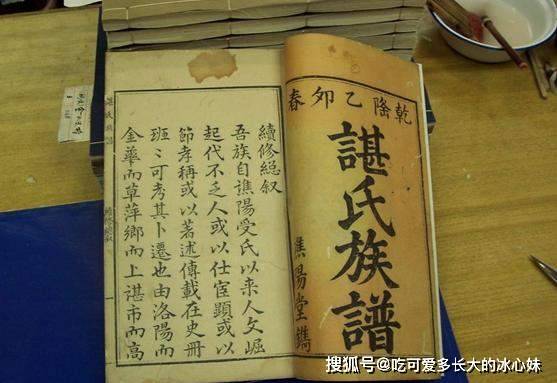 乾隆乙夘春
諶氏族譜
譙陽堂鐫
續修總叙
吾族自譙陽受氏以來人文崛
起代不乏人或以仕宦顯或以
節孝稱或以著述傳載在史冊
班〻可考其卜遷也由洛陽而
金華而草萍鄉而上諶市而高
搜狐号@吃可爱多长大的冰心妹